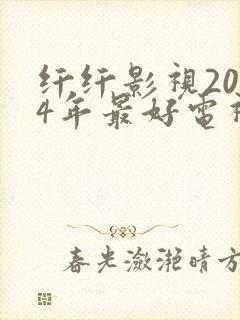 纤纤影視20
4年最好電
春光潋滟晴方